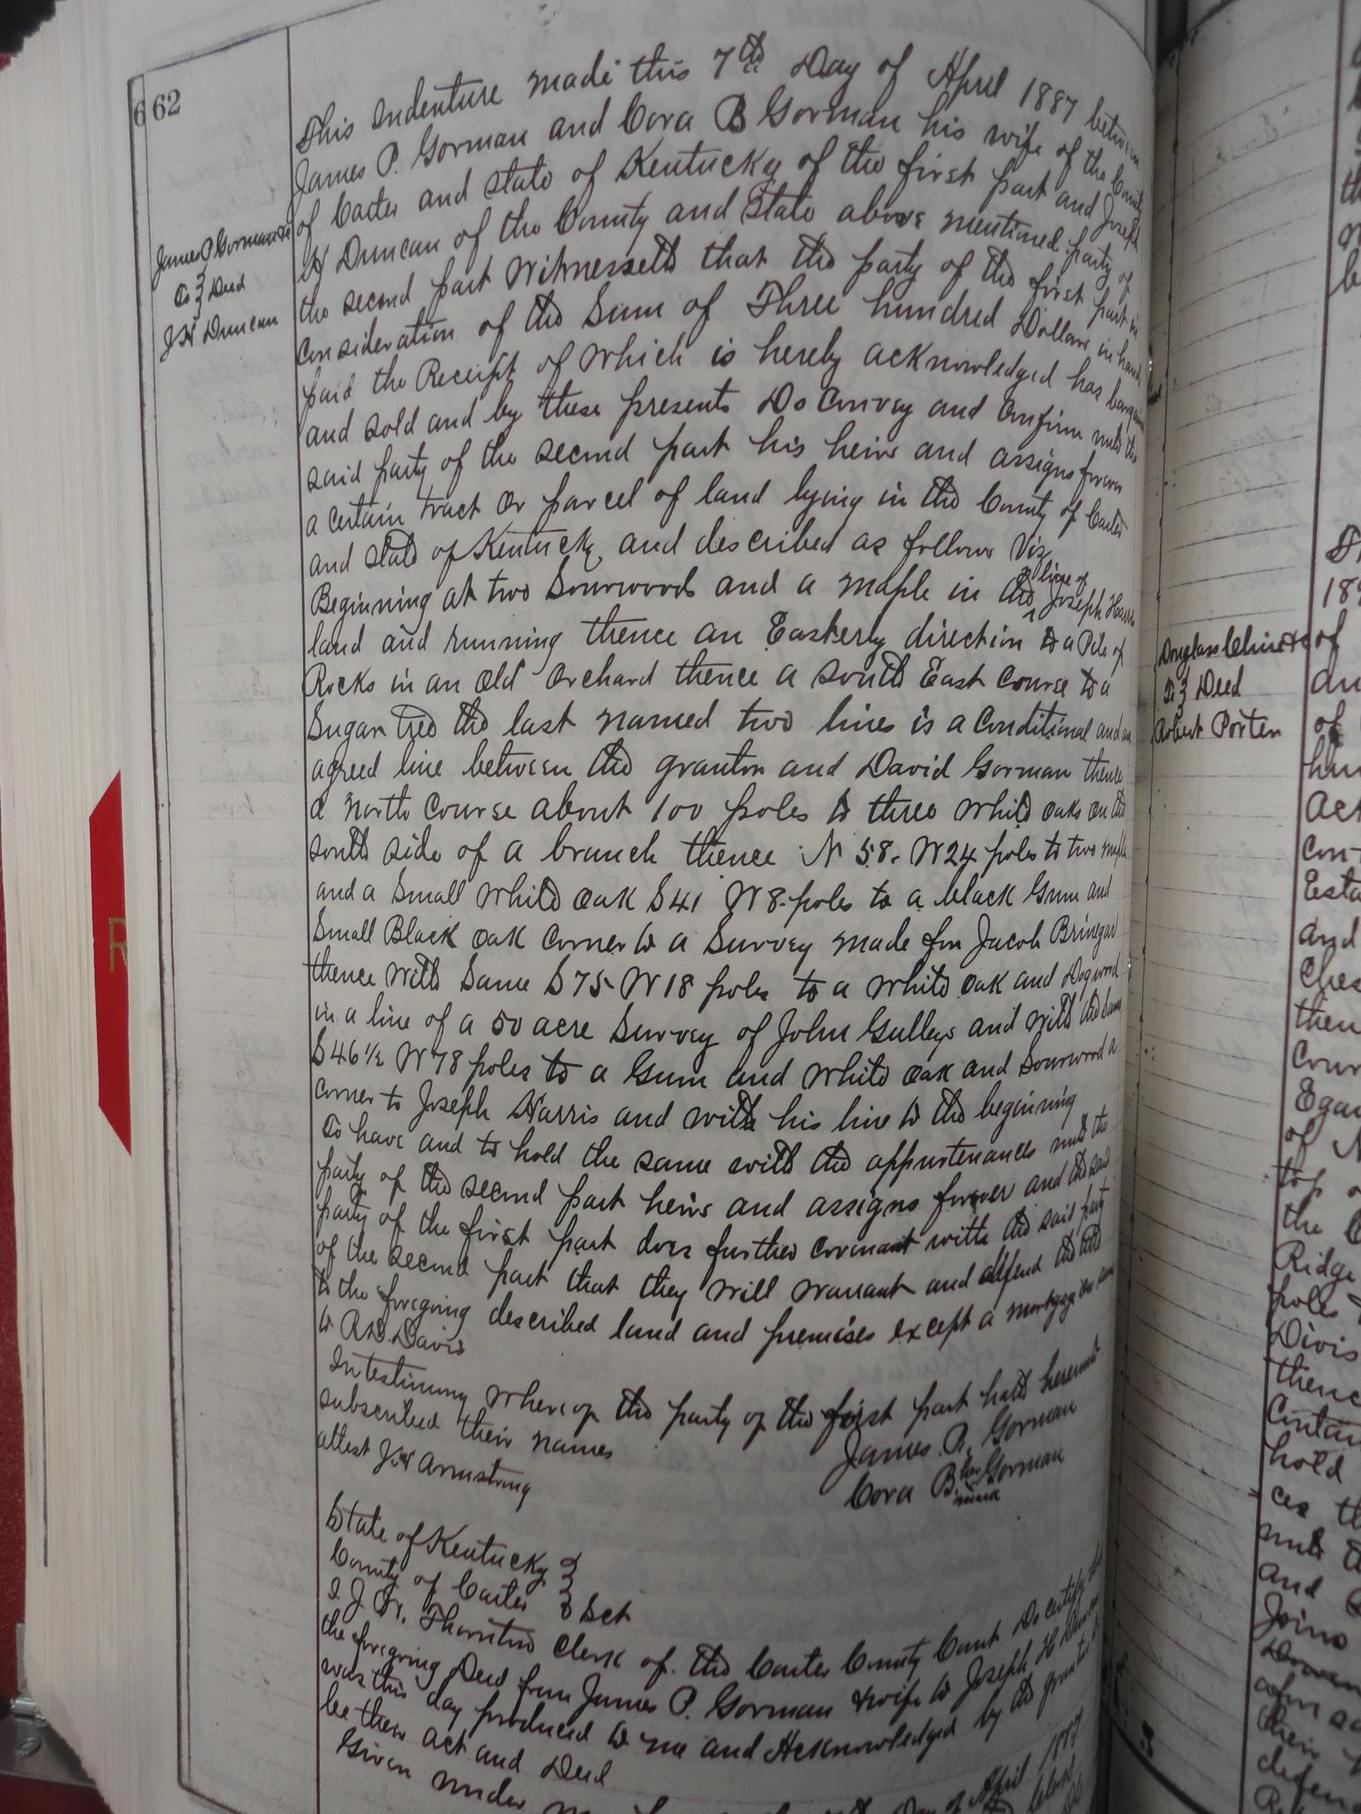 662
James P Gorman &c
To } Deed
J H Duncan
This Indenture made this 7th Day of April 1887 between
James P. Gorman and Cora B Gorman his wife of the County
of Carter and state of Kentucky of the first part and Joseph
H Duncan of the County and State above mentioned party of
the second part Witnesseth that the party of the first part in
consideration of the Sum of Three hundred Dollars in hand
paid the Receipt of which is hereby acknowledged has bargained
and sold and by these presents Do Convey and Confirm unto the
said party of the second part his heirs and assigns forever
a certain tract or parcel of land lying in the County of Carter
and State of Kentucky and described as follows Viz
Beginning at two Sourwoods and a maple in the line of Joseph Harris
land and running thence an Easterly direction to a Pile of
Rocks in an old Orchard thence a south East course to a
Sugar tree the last named two lines is a Conditional and an
agreed line between the grantor and David Gorman thence
a north course about 100 poles to three white oaks on the
south side of a branch thence N 58. W 24 poles to two maples
and a small white oak S 41 W 8. poles to a black Gum and
Small Black oak corner to a Survey made for Jacob Brinegar
thence with Same S 75 W 18 poles to a white oak and Dogwood
in a line of a 50 acre Survey of John Gulleys and with the same
S 46 1/2 W 78 poles to a Gum and white oak and Sourwood a
corner to Joseph Harris and with his line to the beginning
To have and to hold the same with the appurtenances unto the
party of the second part heirs and assigns forever and the said
party of the first part does further covenant with the said party
of the second part that they will warrant and defend the title
to the foregoing described land and premises except a mortgage
to R.D. Davis
In testimony whereof the party of the first part hath hereunto
subscribed their names
James P. Gorman
attest J.H Armstrong
Cora B her Gorman
State of Kentucky }
County of Carter } Sct
I J W. Thornton Clerk of the Carter County Court Do certify that
the foregoing Deed from James P. Gorman & wife to Joseph H Duncan
was this day produced to me and Acknowledged by the grantors to
be their act and Deed
Given under
Day of April 1887
Douglass
To } Deed
Robert Porter
of
of
Acr
Con-
Esta
and
Ches
then
Cour
Egan
of N
top
the
Ridge
poles
Divis
thence
Contan
hold
and
Joins
their
defen